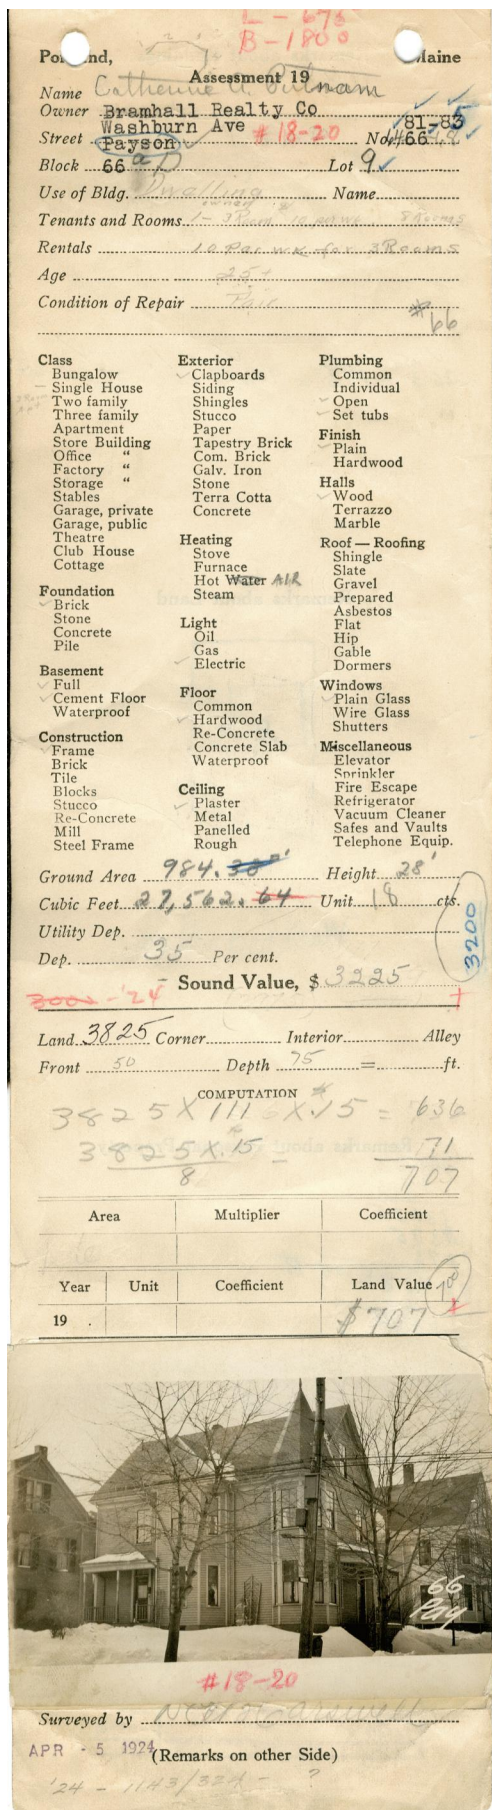 L - 675
B - 1800
Portland, Maine
Assessment 19
Name Catherine A. Putnam
Owner Bramhall Realty Co
Washburn Ave #18-20 81-83
Street Payson No. 66
Block 66 a D Lot 9
Use of Bldg. Dwelling Name
owner
Tenants and Rooms 1 - 3 Room 10 per wk 8 Rooms
Rentals 10 Par wk for 3 Rooms
Age 25+
Condition of Repair Fair
#66
Class
Bungalow
Single House
Two family
Three family
Apartment
Store Building
Office "
Factory "
Storage "
Stables
Garage, private
Garage, public
Theatre
Club House
Cottage
Foundation
Brick
Stone
Concrete
Pile
Basement
Full
Cement Floor
Waterproof
Construction
Frame
Brick
Tile
Blocks
Stucco
Re-Concrete
Mill
Steel Frame
Exterior
Clapboards
Siding
Shingles
Stucco
Paper
Tapestry Brick
Com. Brick
Galv. Iron
Stone
Terra Cotta
Concrete
Heating
Stove
Furnace
Hot Water AIR
Steam
Light
Oil
Gas
Electric
Floor
Common
Hardwood
Re-Concrete
Concrete Slab
Waterproof
Ceiling
Plaster
Metal
Panelled
Rough
Plumbing
Common
Individual
Open
Set tubs
Finish
Plain
Hardwood
Halls
Wood
Terrazzo
Marble
Roof — Roofing
Shingle
Slate
Gravel
Prepared
Asbestos
Flat
Hip
Gable
Dormers
Windows
Plain Glass
Wire Glass
Shutters
Miscellaneous
Elevator
Sprinkler
Fire Escape
Refrigerator
Vacuum Cleaner
Safes and Vaults
Telephone Equip.
Ground Area 984.38 Height 28'
Cubic Feet 27,562.64 Unit 18 cts.
Utility Dep.
3200
Dep. 35 Per cent.
Sound Value, $ 3225
300 - '24
Land 3825 Corner Interior Alley
Front 50 Depth 75 = ft.
COMPUTATION
3825 X 111 X .15 = 636
3825 X 15 = 71
8 707
Area Multiplier Coefficient
Year Unit Coefficient Land Value
700
19 . $707
66
Pay
#18-20
Surveyed by
APR - 5 1924 (Remarks on other Side)
'24 - 1143/324 - ?